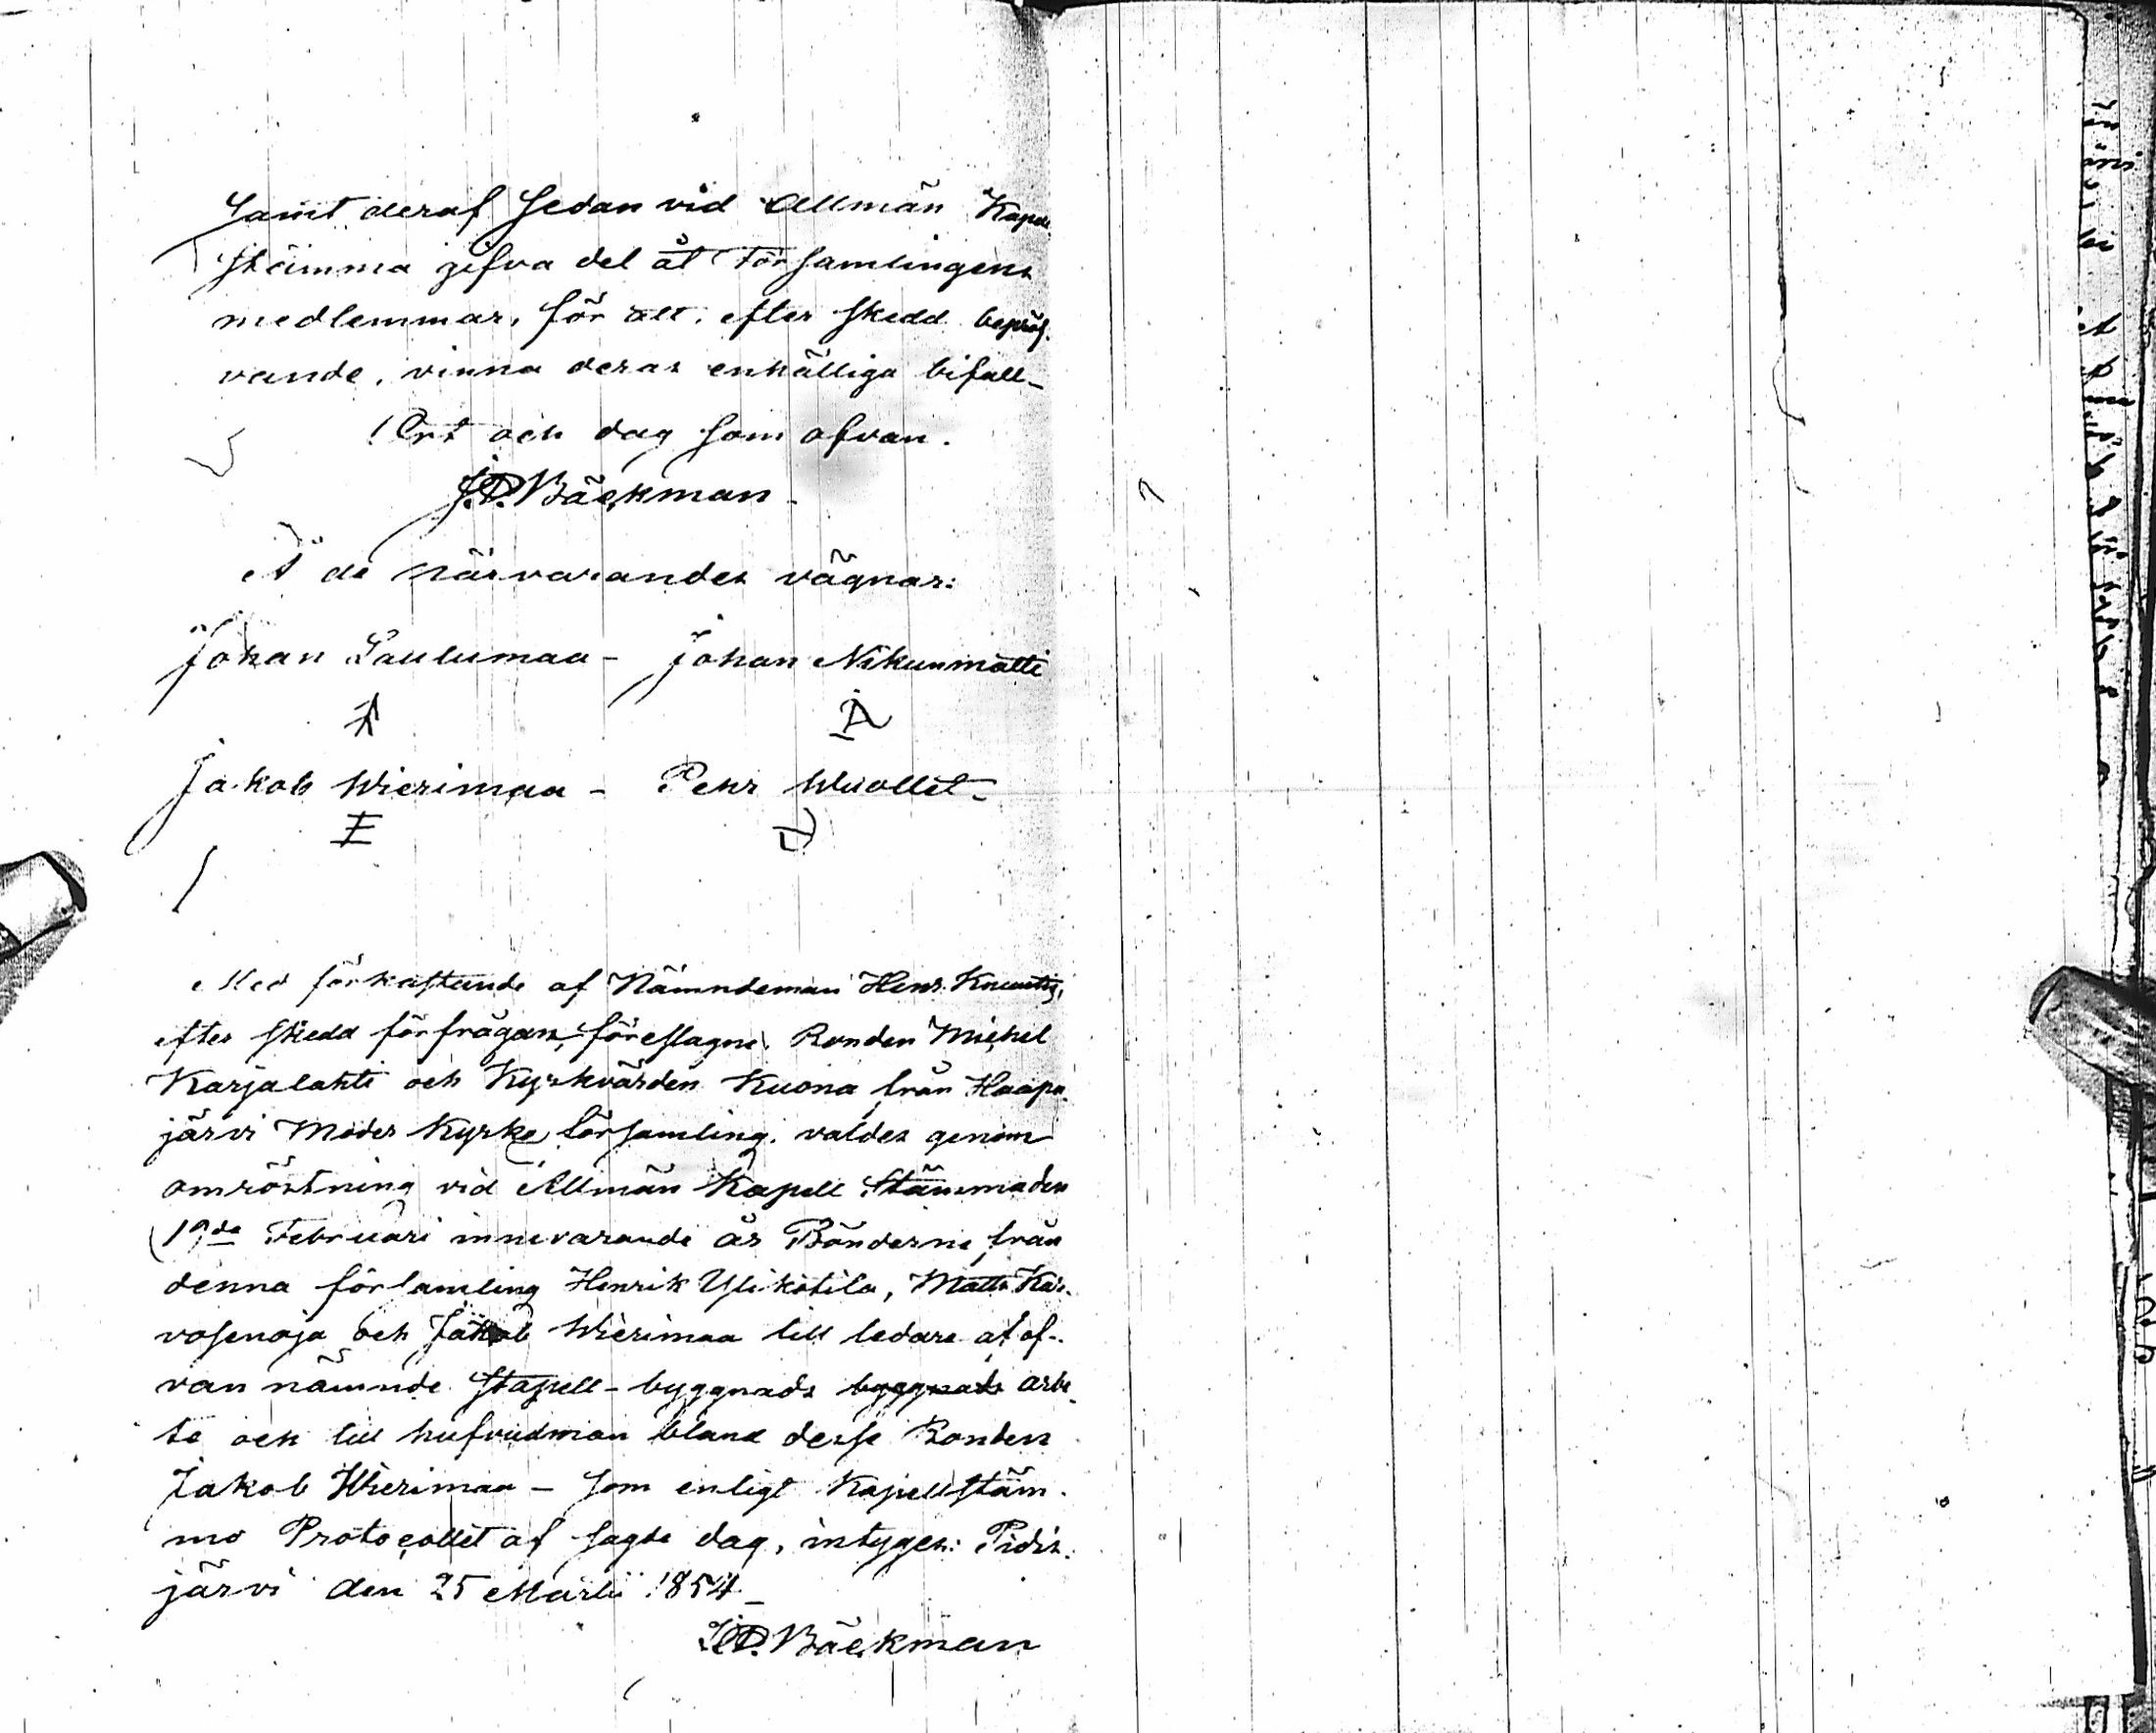 samt deraf sedan vid Allmän Kapell
stämma gifva del åt Församlingens
medlemmar, för att, efter skedd bepröf-
vande, vinna deras enhälliga bifall_
Ort och dag som ofvan.
J.D. Bäckman_
Å de närvarandes vägnar:
Johan Laulumaa – Johan Nikunmatti
Jakob Wierimaa – Pehr Wuollet_
Med förkastande af Nämndeman Henr.
efter skedd förfrågan, föreslagne Bonden Michel
Karjalahti och Kyrkvärden Kuona från Haapa-
järvi Moder Kyrko församling, valdes genom
omröstning vid Allmän Kapell Stämma den
19de Februari innevarande år Bönderne från
denna församling Henrik Ylikotila, Matts Kar-
vosenoja och Jakob Wierimaa till ledare af of-
van nämnde Stapell-byggnads byggnads arbe-
te och till hufvudman bland desse Bonden
Jakob Wierimaa – som enligt Kapellstäm-
mo Protocollet af sagde dag, intyges: Pidis-
järvi den 25 Martii 1854_
J.D. Bäckman